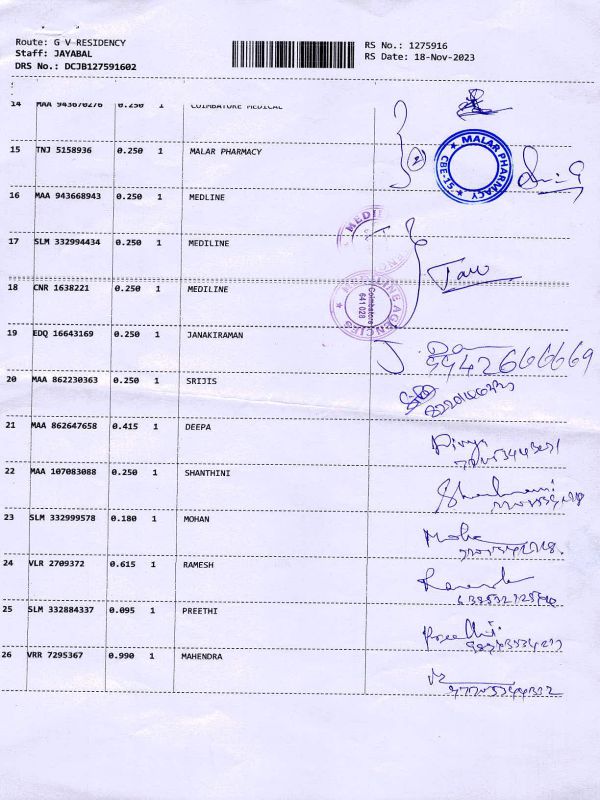 Route: G V RESIDENCY
Staff: JAYABAL
DRS No.: DCJB127591602
RS No.: 1275916
RS Date: 18-Nov-2023
14 MAA 943670276 0.250 1 COIMBATORE MEDICAL
15 TNJ 5158936 0.250 1 MALAR PHARMACY
★ MALAR PHARMACY ★ CBE-15
16 MAA 943668943 0.250 1 MEDLINE
17 SLM 332994434 0.250 1 MEDILINE
18 CNR 1638221 0.250 1 MEDILINE
AGENCIES
Coimbatore
641 028
19 EDQ 16643169 0.250 1 JANAKIRAMAN
9942666669
20 MAA 862230363 0.250 1 SRIJIS
21 MAA 862647658 0.415 1 DEEPA
Divya
22 MAA 107083088 0.250 1 SHANTHINI
23 SLM 332999578 0.180 1 MOHAN
24 VLR 2709372 0.615 1 RAMESH
25 SLM 332884337 0.095 1 PREETHI
Preethi
26 VRR 7295367 0.990 1 MAHENDRA